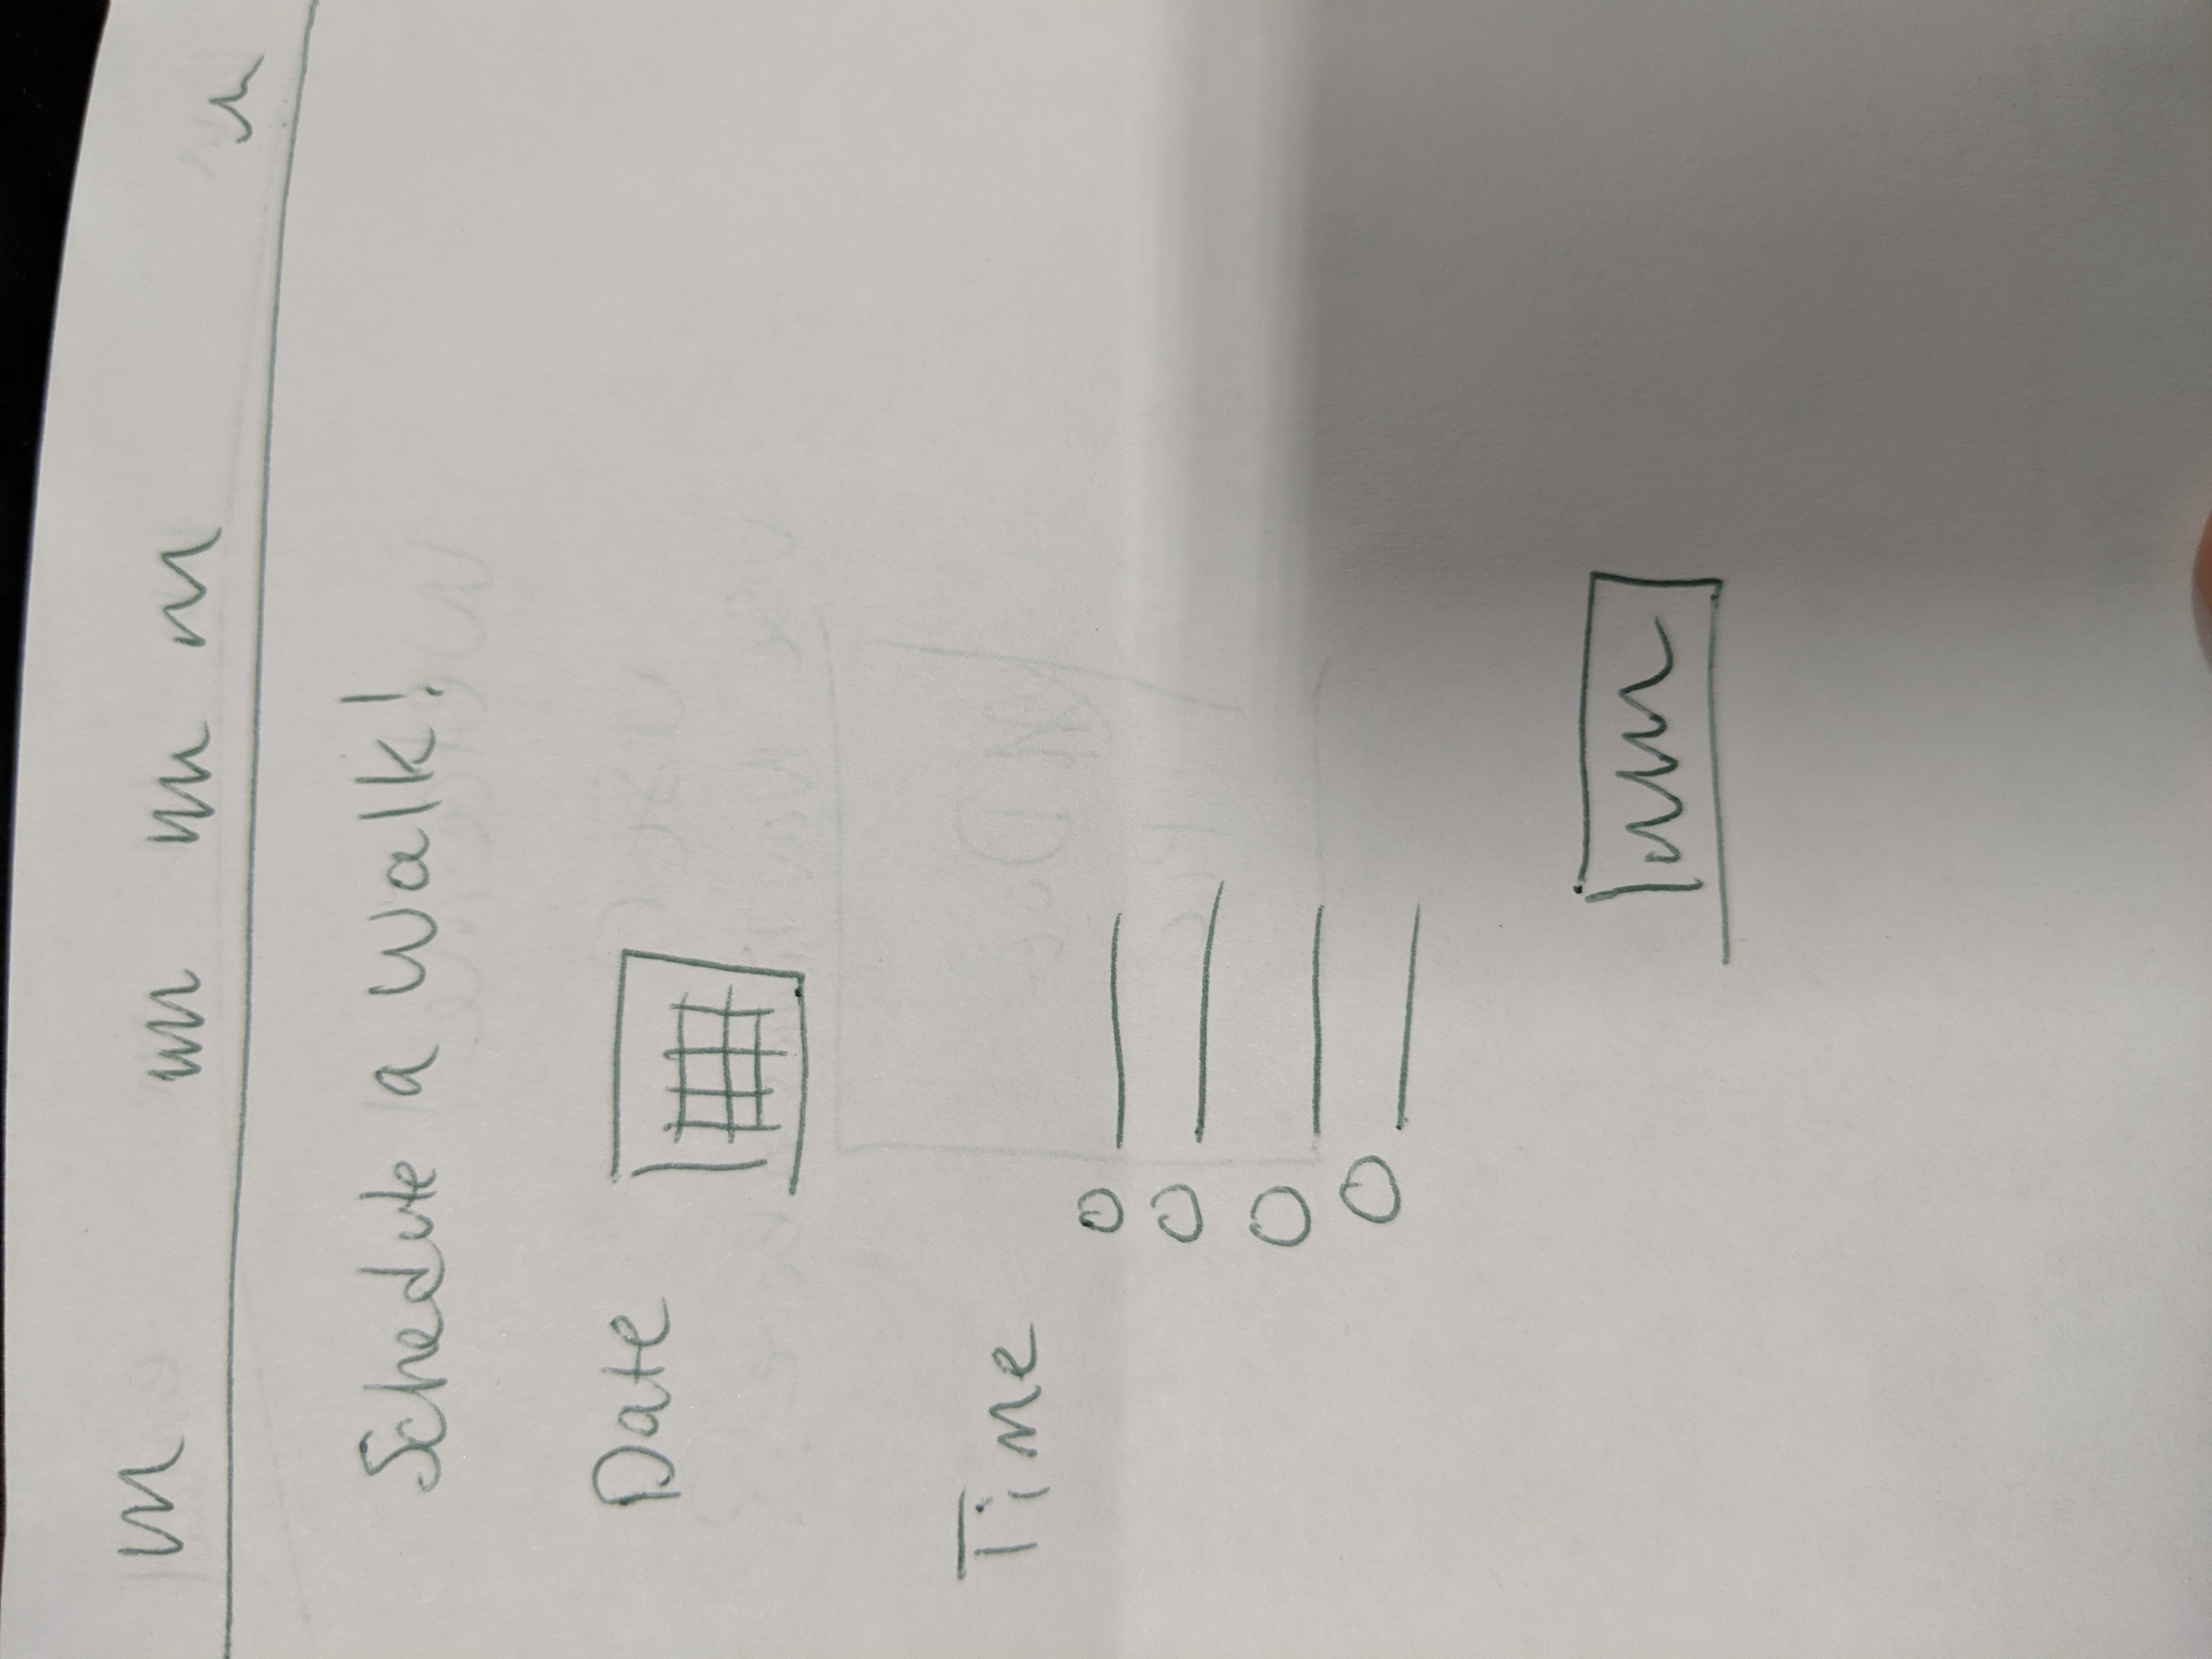 Schedule a Walk!
Date
Time